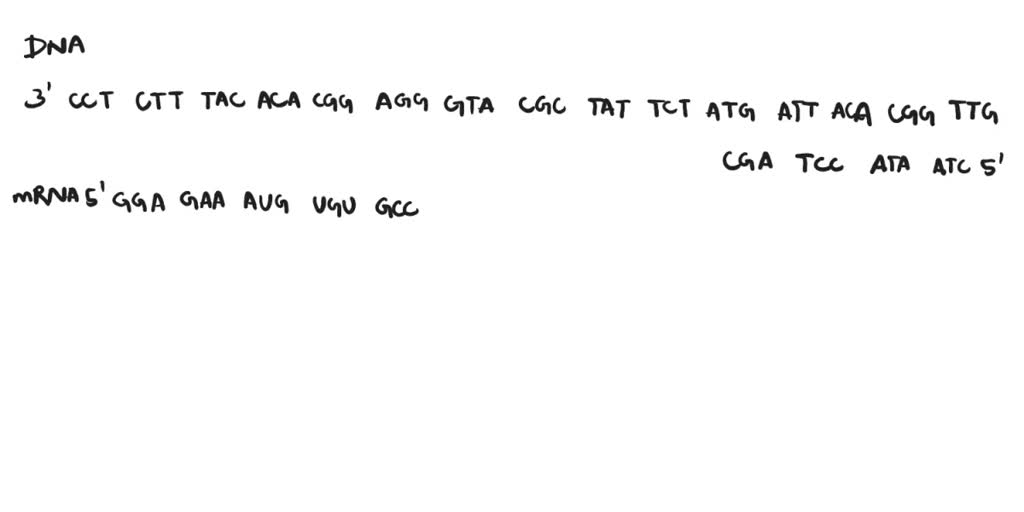 DNA
3' CCT CTT TAC ACA CGG AGG GTA CGC TAT TCT ATG ATT ACA CGG TTG
CGA TCC ATA ATC 5'
mRNA 5' GGA GAA AUG UGU GCC